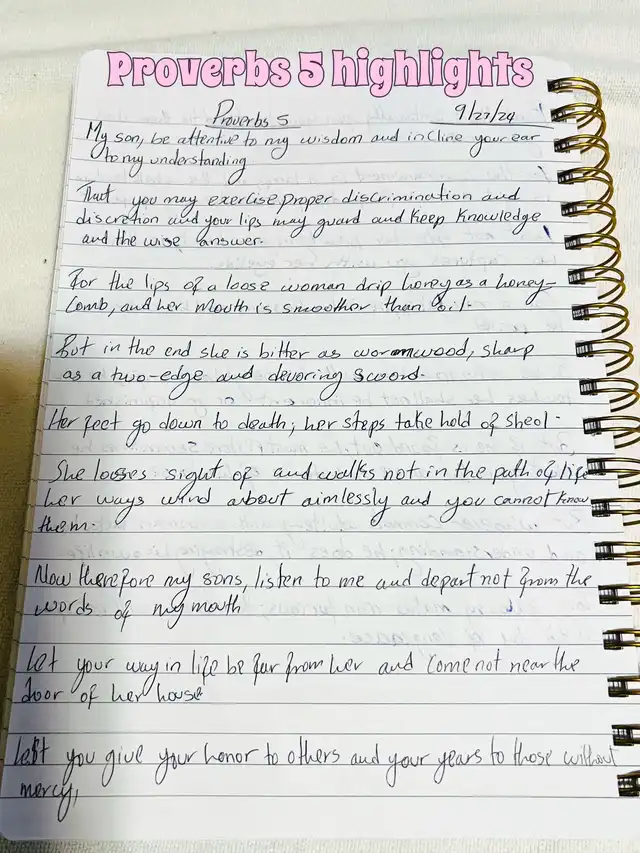 Proverbs 5 highlights
Proverbs 5 9/27/24
My son, be attentive to my wisdom and incline your ear
to my understanding
That you may exercise proper discrimination and
discretion and your lips may guard and keep knowledge
and the wise answer.
For the lips of a loose woman drip honey as a honey-
comb, and her mouth is smoother than oil.
But in the end she is bitter as wormwood, sharp
as a two-edge and devoring sword.
Her feet go down to death; her steps take hold of sheol.
She losses sight of and walks not in the path of life
her ways wind about aimlessly and you cannot know
them.
Now therefore my sons, listen to me and depart not from the
words of my mouth
Let your way in life be far from her and come not near the
door of her house
Lest you give your honor to others and your years to those without
mercy,